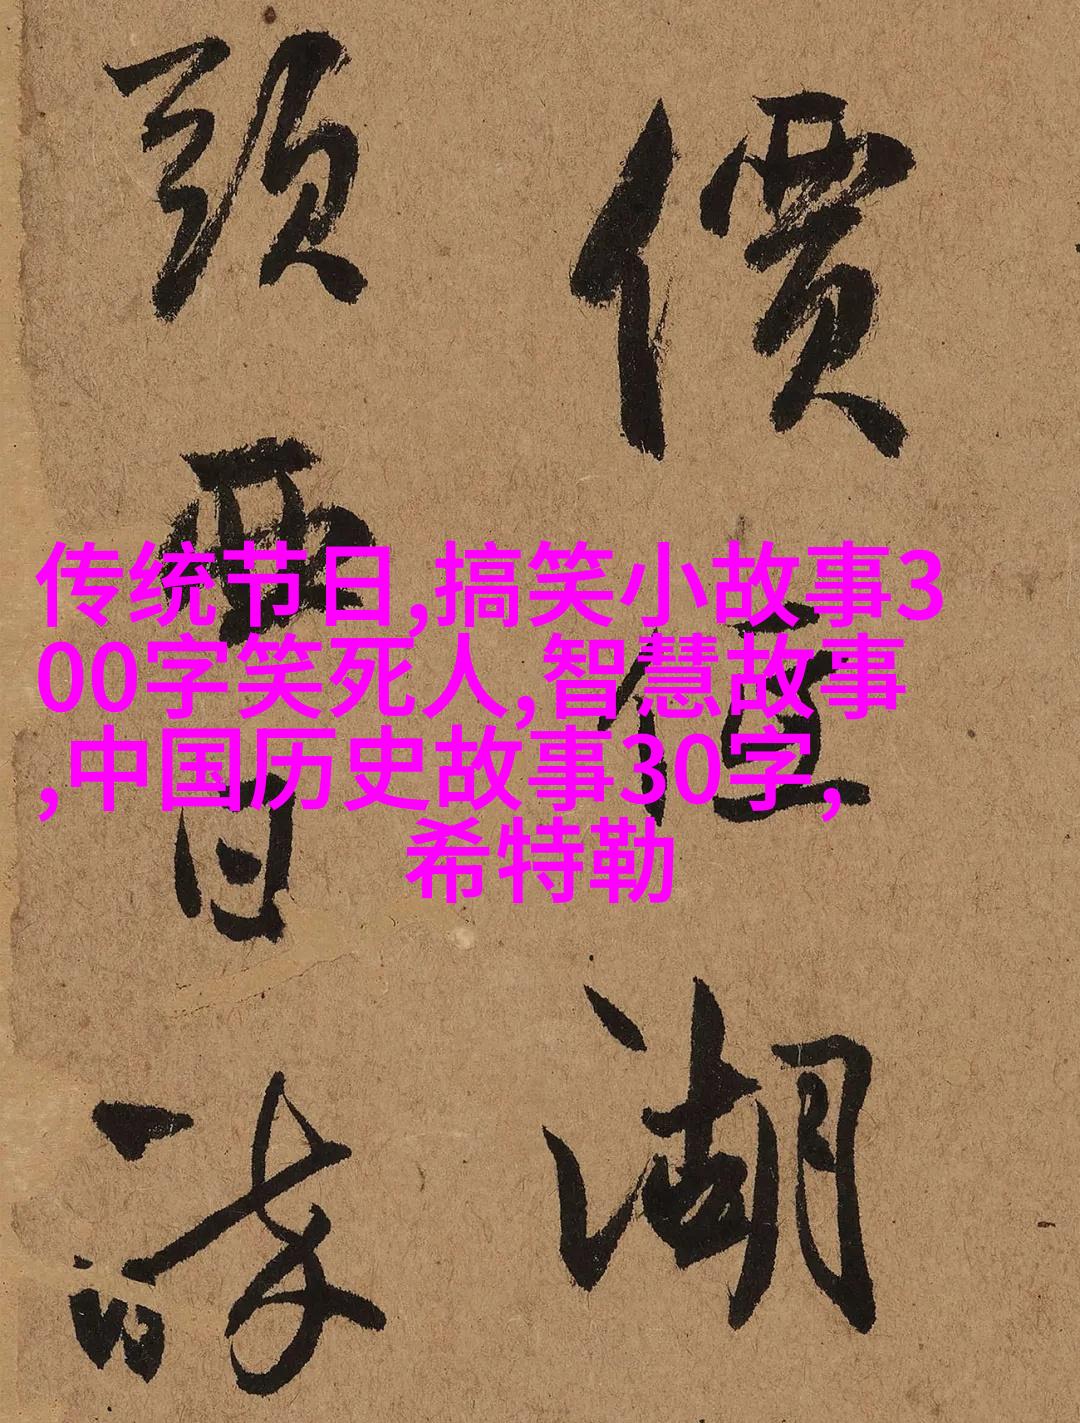 傳统节日,搞笑小故事3
00字笑死人,智慧故事
,中国历史故事30字,
希特勒
價但湖
頭西日